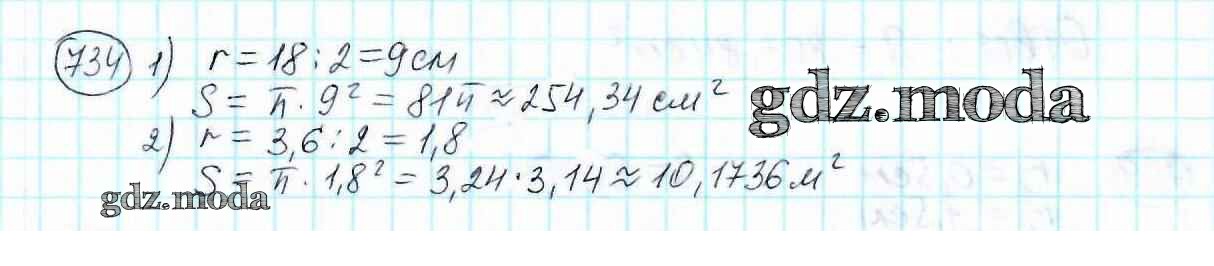 734 1) r = 18 : 2 = 9 см
S = π · 9² = 81π ≈ 254,34 см²
gdz.moda
2) r = 3,6 : 2 = 1,8
S = π · 1,8² = 3,24 · 3,14 ≈ 10,1736 м²
gdz.moda